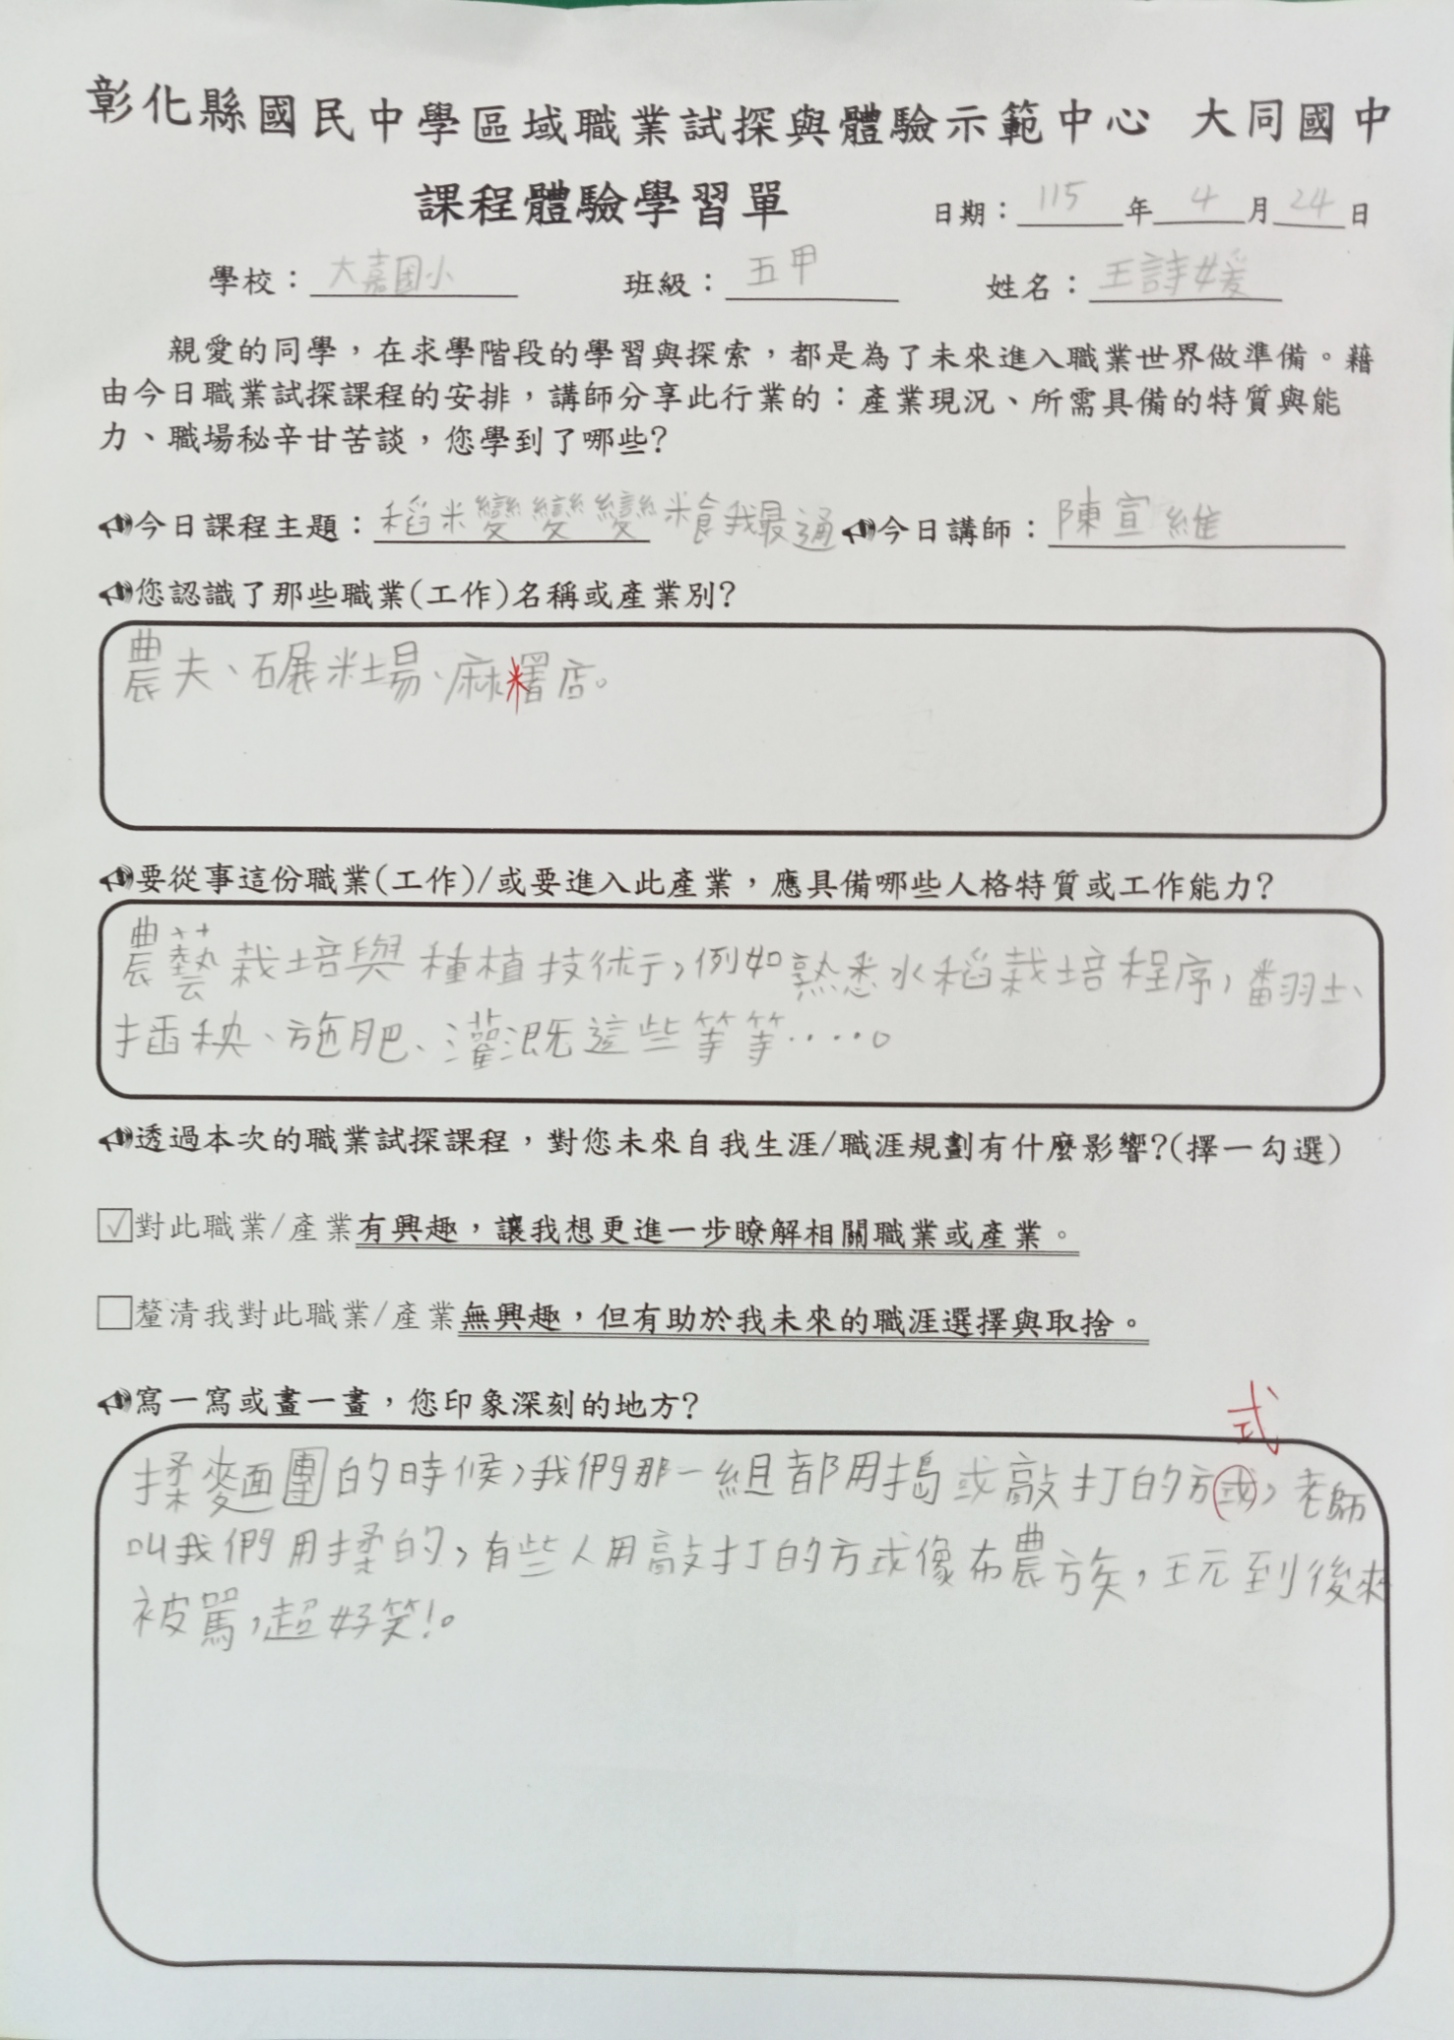 彰化縣國民中學區域職業試探與體驗示範中心 大同國中
課程體驗學習單 日期：115年4月24日
學校：大嘉國小 班級：五甲 姓名：王詩媛
親愛的同學，在求學階段的學習與探索，都是為了未來進入職業世界做準備。藉
由今日職業試探課程的安排，講師分享此行業的：產業現況、所需具備的特質與能
力、職場秘辛甘苦談，您學到了哪些?
今日課程主題：稻米變變變米食我最通 今日講師：陳宣維
您認識了那些職業(工作)名稱或產業別?
農夫、碾米場、麻糬店。
要從事這份職業(工作)/或要進入此產業，應具備哪些人格特質或工作能力?
農藝栽培與種植技術，例如熟悉水稻栽培程序，翻土、
插秧、施肥、灌溉這些等等……。
透過本次的職業試探課程，對您未來自我生涯/職涯規劃有什麼影響?(擇一勾選)
☑對此職業/產業有興趣，讓我想更進一步瞭解相關職業或產業。
□釐清我對此職業/產業無興趣，但有助於我未來的職涯選擇與取捨。
寫一寫或畫一畫，您印象深刻的地方?
式
揉麵團的時候，我們那一組都用搗或敲打的方或，老師
叫我們用揉的，有些人用敲打的方式像布農族，玩到後來
被罵，超好笑!。